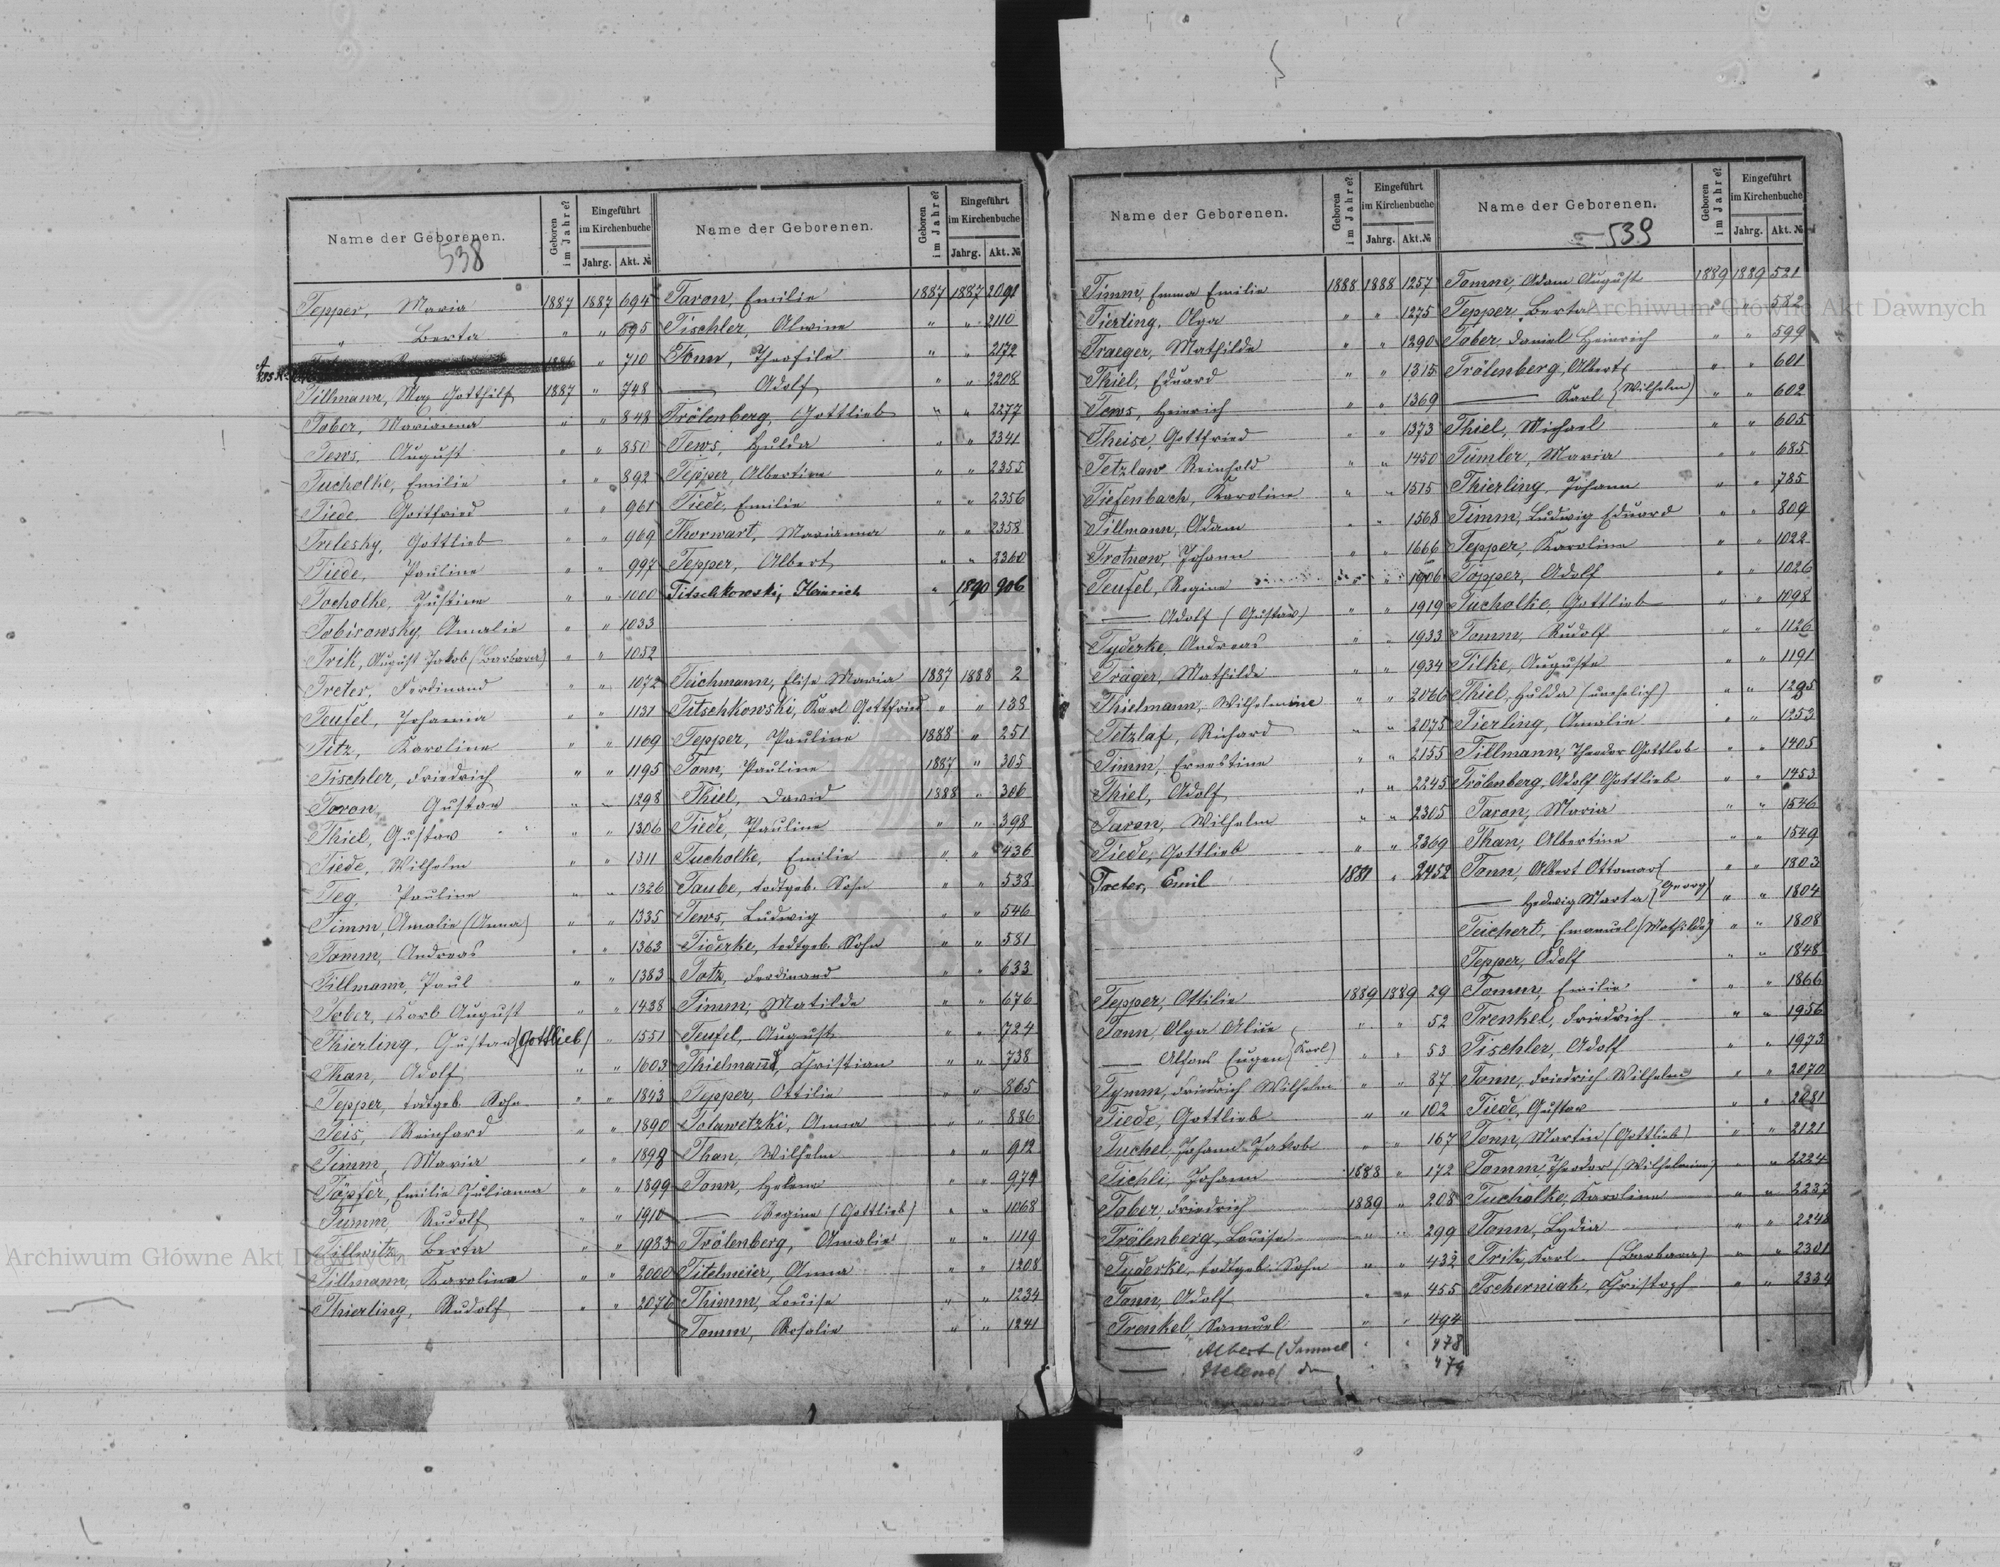 Name der Geborenen. Geboren im Jahre? Eingeführt im Kirchenbuche Jahrg. Akt. №
538
Tepper, Maria 1887 1887 694
" Berta " " 695
1886 " 710
Tillmann, Max Gotthilf 1887 " 748
Tober, Marianna " " 848
Tews, August " " 850
Tucholke, Emilie " " 892
Tiede, Gottfried " " 961
Treleshy, Gottlieb " " 969
Tiede, Pauline " " 997
Tocholke, Justine " " 1000
Tobirowsky, Amalie " " 1033
Trik, August Jakob (Barbara) " " 1052
Treter, Ferdinand " " 1072
Teufel, Johanna " " 1131
Titz, Karoline " " 1169
Tischler, Friedrich " " 1195
Toron, Gustav " " 1298
Thiel, Gustav " " 1306
Tiede, Wilhelm " " 1311
Teg, Pauline " " 1326
Timm, Amalie (Anna) " " 1335
Tomm, Andreas " " 1363
Tillmann, Paul " " 1383
Tober, Karl August " " 1438
Thierling, Gustav (Gottlieb) " 1551
Than, Adolf " " 1603
Tepper, todtgeb. Sohn " " 1843
Teis, Reinhard " " 1890
Timm, Maria " " 1898
Töpfer, Emilie Julianna " " 1899
Tumm, Rudolf " " 1910
Tillwitz, Berta " " 1983
Tillmann, Karoline " " 2000
Thierling, Rudolf " " 2076
Name der Geborenen. Geboren im Jahre? Eingeführt im Kirchenbuche Jahrg. Akt. №
Taron, Emilie 1887 1887 2091
Tischler, Alwine " " 2110
Tonn, Theofile " " 2172
— Adolf " " 2208
Trölenberg, Gottlieb " " 2277
Tews, Hulda " " 2341
Tepper, Albertine " " 2355
Tiede, Emilie " " 2356
Thorwart, Marianna " " 2358
Tepper, Albert " " 2360
Titschkowski, Heinrich " 1890 906
Teichmann, Elise Maria 1887 1888 2
Titschkowski, Karl Gottfried " " 138
Tepper, Pauline 1888 " 251
Tonn, Pauline 1887 " 305
Thiel, David 1888 " 306
Tiede, Pauline " " 398
Tucholke, Emilie " " 436
Taube, todtgeb. Sohn " " 538
Tews, Ludwig " " 546
Tiderke, todtgeb. Sohn " " 581
Totz, Ferdinand " " 633
Timm, Matilde " " 676
Teufel, August " " 724
Thielmann, Christian " " 738
Tepper, Ottilie " " 865
Totawetzki, Anna " " 886
Than, Wilhelm " " 912
Tonn, Helene " " 979
— Regina (Gottlieb) " " 1068
Trölenberg, Amalie " " 1119
Titelmeier, Anna " " 1208
Thimm, Louise " " 1234
Tomm, Rosalie " " 1241
Name der Geborenen. Geboren im Jahre? Eingeführt im Kirchenbuche Jahrg. Akt. №
Timm, Emma Emilie 1888 1888 1257
Tierling, Olga " " 1275
Traeger, Mathilde " " 1290
Thiel, Eduard " " 1315
Tews, Heinrich " " 1369
Theise, Gottfried " " 1373
Tetzlaw Reinhold " " 1450
Tiefenbach, Karoline " " 1515
Tillmann, Adam " " 1568
Trotnow, Johann " " 1666
Teufel, Regine " " 1906
— Adolf (Gustav) " " 1919
Tyderke, Andreas " " 1933
Träger, Mathilde " " 1934
Thielmann, Wilhelmine " " 2066
Tetzlaf, Richard " " 2075
Timm, Ernestine " " 2155
Thiel, Adolf " " 2245
Taron, Wilhelm " " 2305
Tiede, Gottlieb " " 2369
Treter, Emil 1887 " 2452
Tepper, Ottilie 1889 1889 29
Tonn, Olga Alice " " 52
— Alfons Eugen (Karl) " " 53
Tymm, Friedrich Wilhelm " " 87
Tiede, Gottlieb " " 102
Tuchel, Johann Jakob " " 167
Tichli, Johann 1888 " 172
Tober, Friedrich 1889 " 208
Trölenberg, Louise " " 299
Tyderke, todtgeb. Sohn " " 432
Tonn, Adolf " " 455
Trenkel, Samuel " " 494
— Albert (Samuel " " 478
— Helene ( do " " 479
Name der Geborenen. Geboren im Jahre? Eingeführt im Kirchenbuche Jahrg. Akt. №
539
Tomm, Adam August 1889 1889 521
Tepper, Berta " " 582
Taber, Daniel Heinrich " " 599
Trölenberg, Albert " " 601
— Karl (Wilhelm) " " 602
Thiel, Michael " " 605
Tümler, Maria " " 685
Thierling, Johann " " 785
Timm, Ludwig Eduard " " 809
Tepper, Karoline " " 1022
Töpper, Adolf " " 1026
Tucholke, Gottlieb " " 1098
Tomm, Rudolf " " 1126
Tilke, Auguste " " 1191
Thiel, Hulda (unehelich) " " 1295
Tierling, Amalie " " 1253
Tillmann, Theodor Gottlob " " 1405
Trölenberg, Adolf Gottlieb " " 1453
Taron, Maria " " 1546
Than, Albertine " " 1549
Tonn, Albert Ottomar " " 1803
— Hedwig Marta (Georg) " " 1804
Teichert, Emanuel (Mathilde) " " 1808
Tepper, Adolf " " 1848
Tomm, Emilie " " 1866
Trenkel, Friedrich " " 1956
Tischler, Adolf " " 1973
Tonn, Friedrich Wilhelm " " 2070
Tiede, Gustav " " 2081
Tonn, Martin (Gottlieb) " " 2121
Tomm, Theodor (Wilhelmine) " " 2224
Tucholke, Karoline " " 2237
Tonn, Lydia " " 2248
Trik, Karl (Barbara) " " 2301
Tscherniak, Christoph " " 2334
Archiwum Główne Akt Dawnych
Archiwum Główne Akt Dawnych